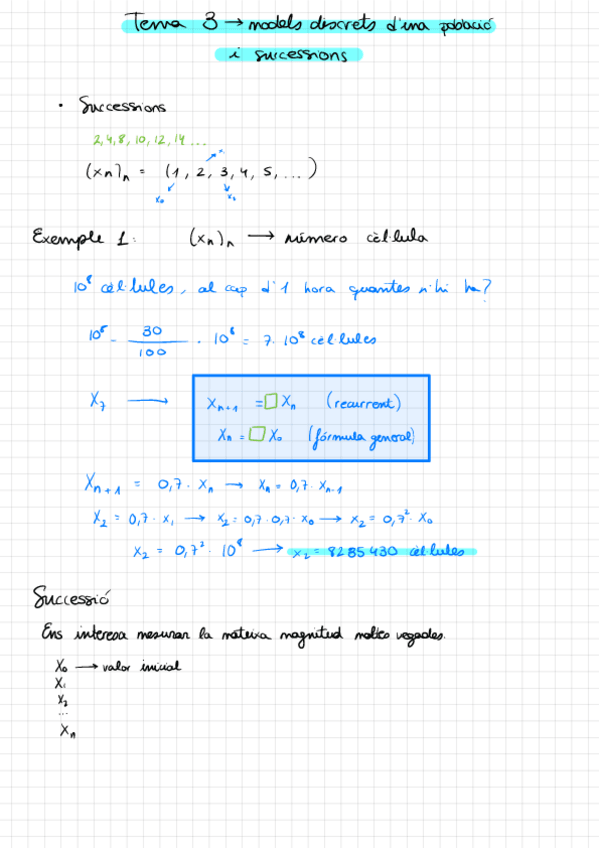 Tema 3 → models discrets d'una població
i successions
• Successions
2, 4, 8, 10, 12, 14 ...
(xn)n = (1, 2, 3, 4, 5, ...)
x₀
Exemple 1: (xn)n → número cèl·lula
10⁸ cèl·lules, al cap d'1 hora quantes n'hi ha?
10⁸ - 30/100 · 10⁸ = 7·10⁸ cèl·lules
X₇ →
Xn+1 = □ Xn (recurrent)
Xn = □ X₀ (fórmula general)
Xn+1 = 0,7 · Xn → Xn = 0,7 · Xn-1
X₂ = 0,7 · X₁ → X₂ = 0,7 · 0,7 · X₀ → X₂ = 0,7² · X₀
X₂ = 0,7⁷ · 10⁸ → X₇ = 8235430 cèl·lules
Successió
Ens interesa mesurar la mateixa magnitud moltes vegades.
X₀ → valor inicial
X₁
X₂
...
Xn